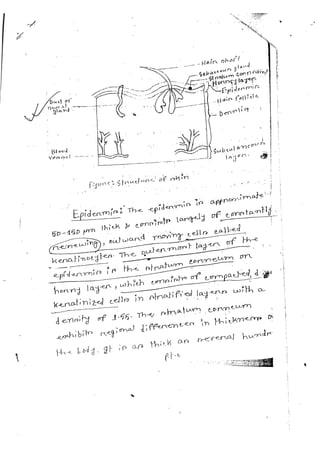 Hain shaft
Sebaceous gland
Stratum corneum
Honny layer
Epidermis
Hain follicle
Dermis
Duct of
gland
Blood
vessel
Subcutaneous
layer.
Figure: Structure of skin
Epidermis: The epidermis is approximate
50-150 µm thick & consists largely of constantly
renewing, outward moving cells called
keratinocytes. The outermost layer of the
epidermis is the stratum corneum or
horny layer, which consists of compacted, d
keratinized cells in stratified layers with a
density of 1.55. The stratum corneum
exhibits regional differences in thickness o
the body. It is as thick as several hundr